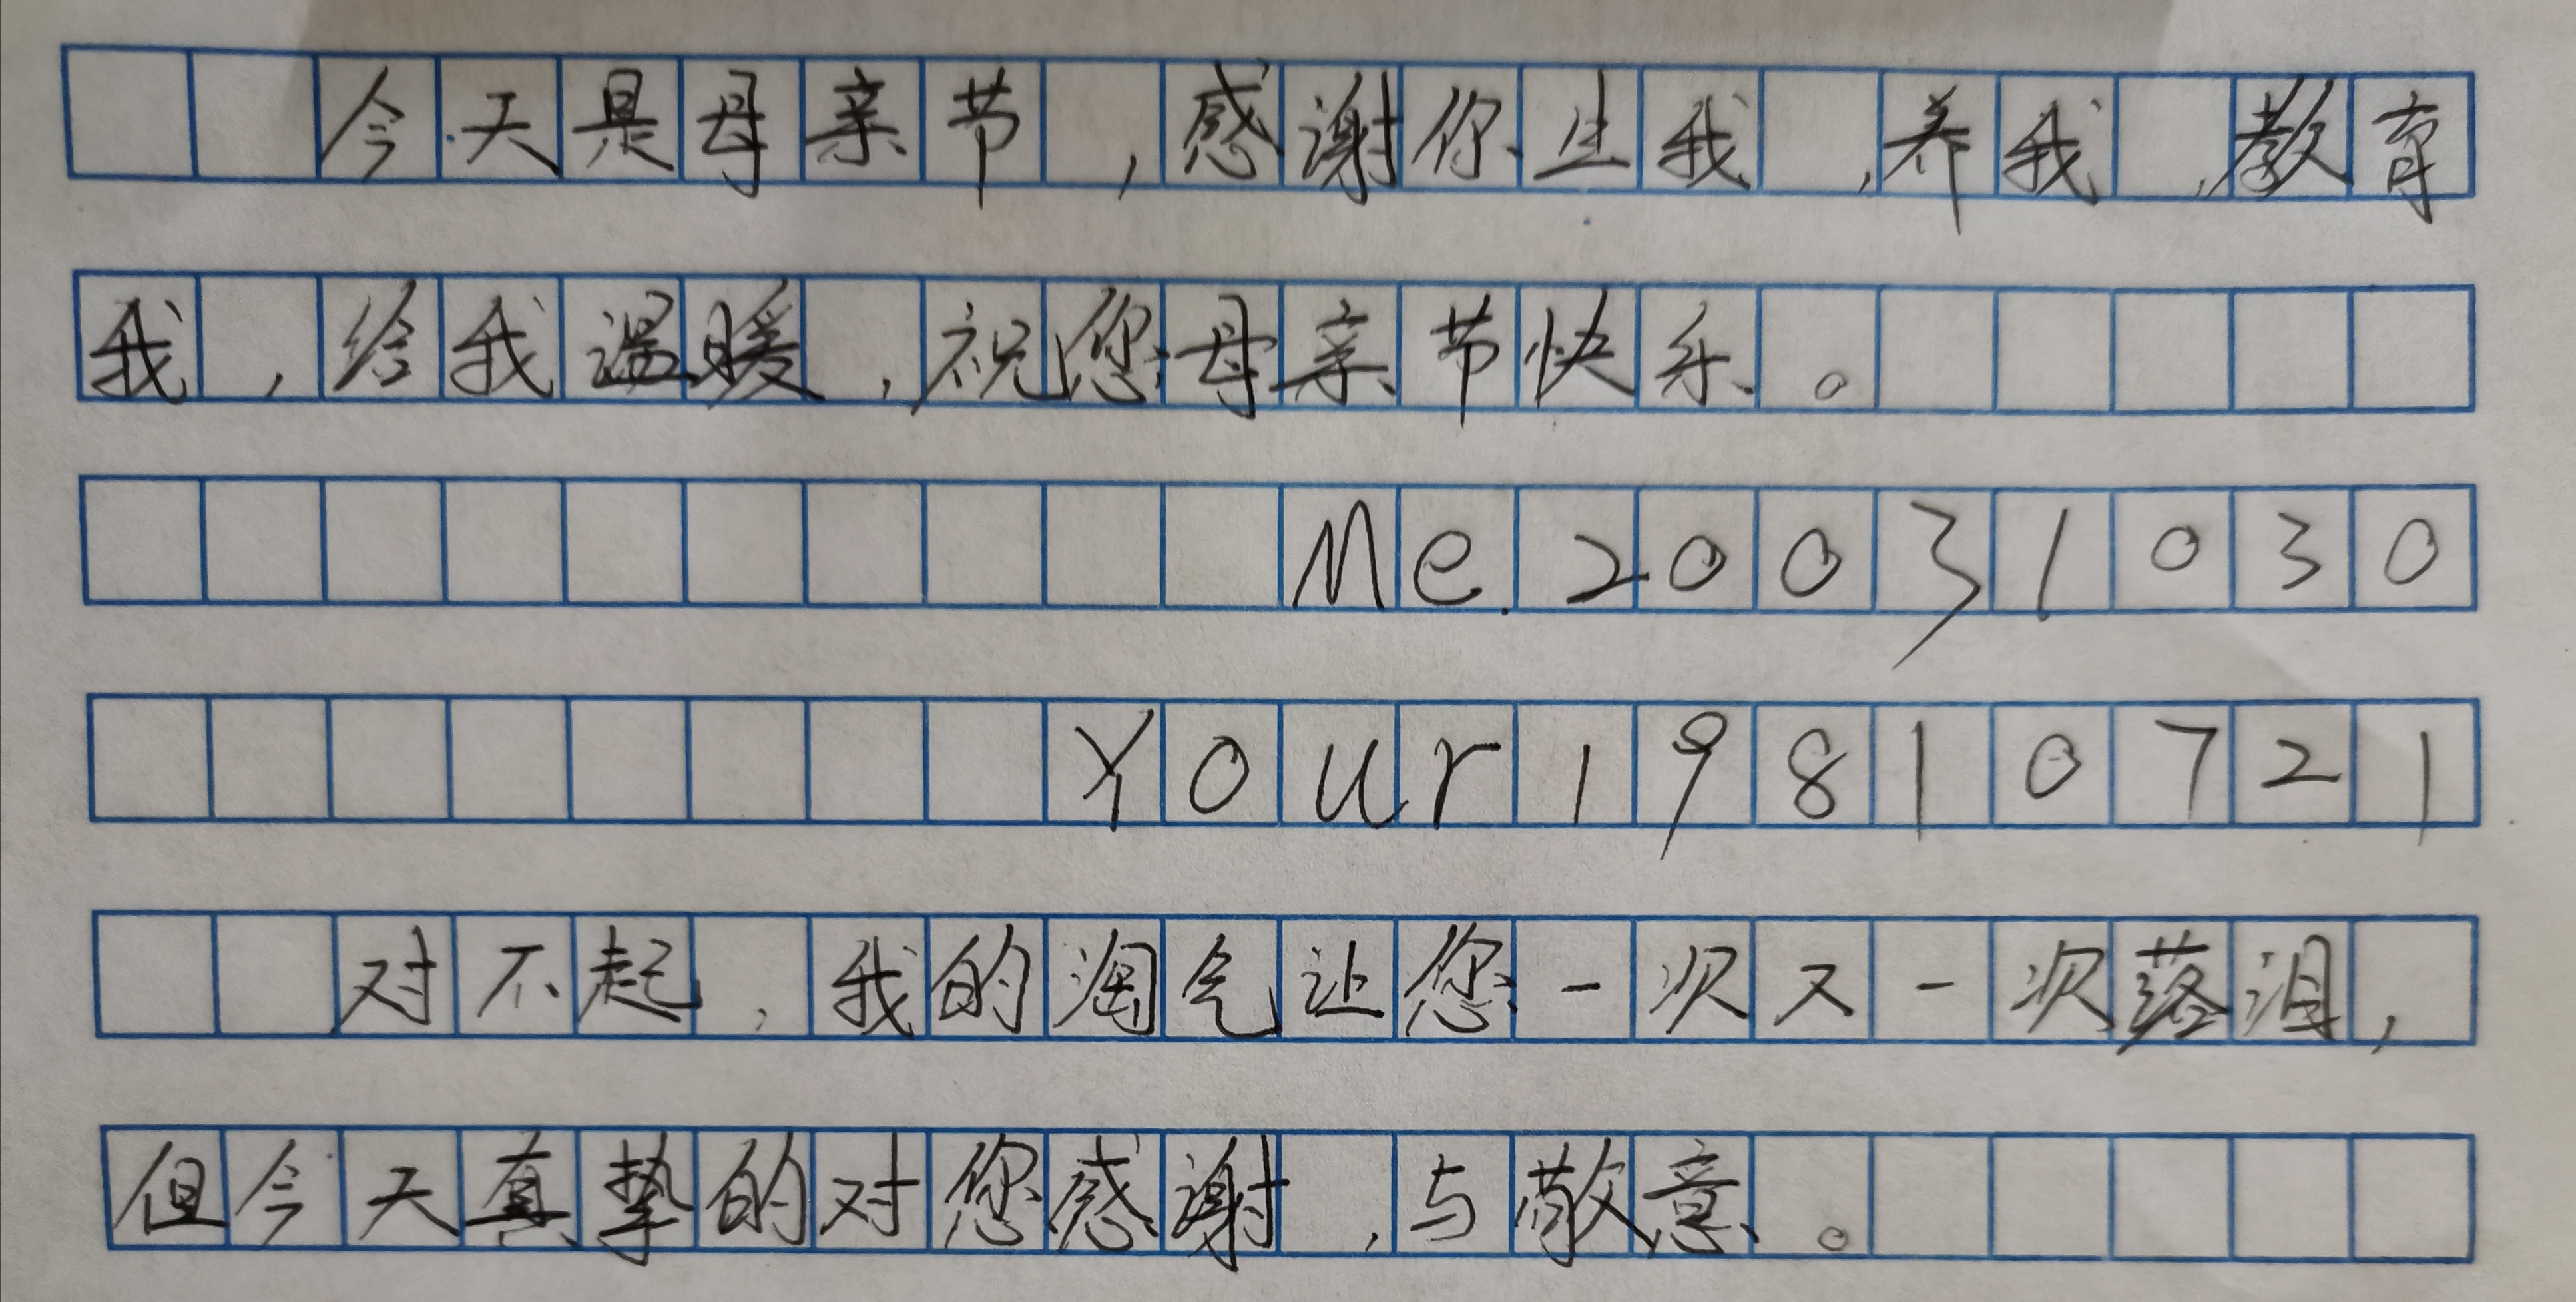 今天是母亲节,感谢你生我,养我,教育
我,给我温暖,祝您母亲节快乐。
Me.20031030
Your19810721
对不起,我的淘气让您一次又一次落泪,
但今天真挚的对您感谢,与敬意。